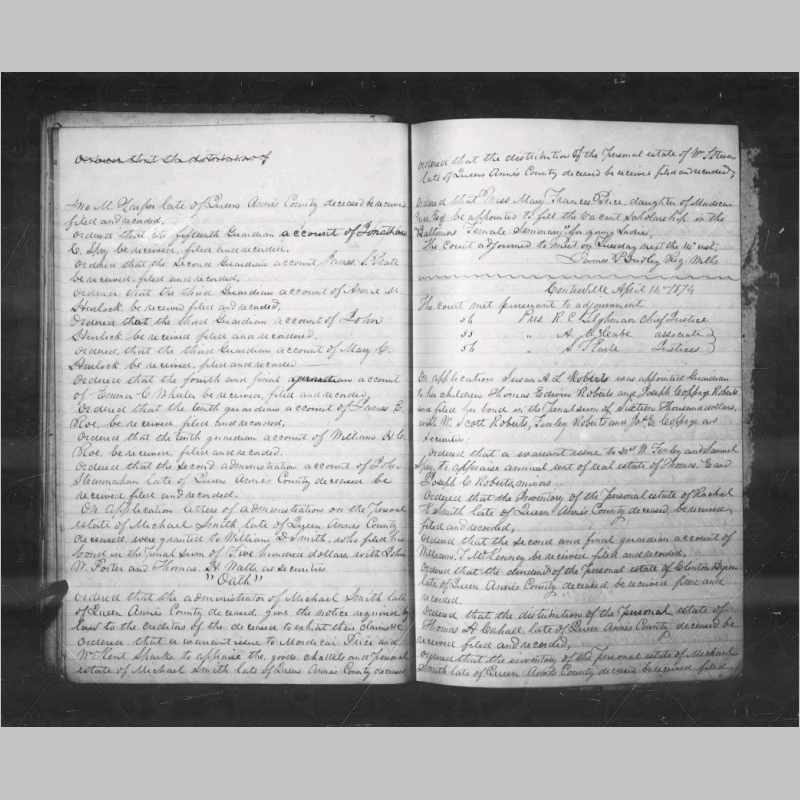 Ordered that the distribution of
Jno M. Taylor late of Queens Anne's County deceased be received
filed and recorded.
Ordered that the fifteenth Guardian account of Jonathan
C. Spry be received, filed and recorded.
Ordered that the Second Guardian account James S. Keate
be received, filed and recorded.
Ordered that the third Guardian account of Annie M.
Hurlock be received filed and recorded,
Ordered that the third Guardian account of John
Hurlock be received filed and recorded.
Ordered, that the third Guardian account of Mary C.
Hurlock be received, filed and recorded
Ordered that the fourth and final guardian account
of Emma C. Whaley be received, filed and recorded
Ordered that the tenth guardian account of James E.
Roe be received filed and recorded,
Ordered that the tenth guardian account of William H. C.
Roe be received filed and recorded.
Ordered that the second administration account of John
Shannahan late of Queen Anne's County deceased be
received filed and recorded.
On Application letters of administration on the personal
estate of Michael Smith late of Queen Anne's County
deceased, were granted to William D. Smith, who filed his
bond in the penal sum of Five hundred dollars with John
W. Porter and Thomas H. Walls as securities
"Oath"
Ordered that the administrator of Michael Smith late
of Queen Anne's County deceased give the notice required by
law to the creditors of the deceased to exhibit their claims &c
Ordered that a warrant issue to Mordecai Price and
Wm Kent Sparks to appraise the goods chattels and personal
estate of Michael Smith late of Queen Anne's County deceased
Ordered that the distribution of the personal estate of Wm
late of Queens Anne's County deceased be received filed and recorded,
Ordered that Miss Mary Frances Price daughter of Mordecai
Price Esq be appointed to fill the vacant scholarship in the
"Baltimore Female Seminary" for young ladies,
The Court adjourned to meet on Tuesday next the 14th inst,
James P. Reg. Wills
Centreville April 14th 1874
The court met pursuant to adjournment
Pres R. C. Tilghman Chief Justice
" A. associate
" S. Justices
On application Susan A. L. Roberts was appointed Guardian
to her children Thomas Edwin Roberts and Joseph Coppage Roberts
and filed her bond in the penal sum of Sixteen Thousand dollars,
with W. Scott Roberts, Finley Roberts and Jos. E. Coppage as
Securities
Ordered that a warrant issue to W. Finley and Samuel
Spry, to appraise annual rent of real estate of Thomas E and
Joseph C Roberts minors
Ordered that the Inventory of the personal estate of Rachel
K Smith late of Queen Anne's County deceased, be received,
filed and recorded,
Ordered that the second and final guardian account of
William T. McKenney be received filed and recorded,
Ordered that the dividend of the personal estate of Clinton
late of Queen Anne's County deceased be received filed and
recorded
Ordered that the distribution of the personal estate of
Thomas H. late of Queen Anne's County deceased be
received filed and recorded,
Ordered that the inventory of the personal estate of Michael
Smith late of Queen Anne's County deceased be received filed